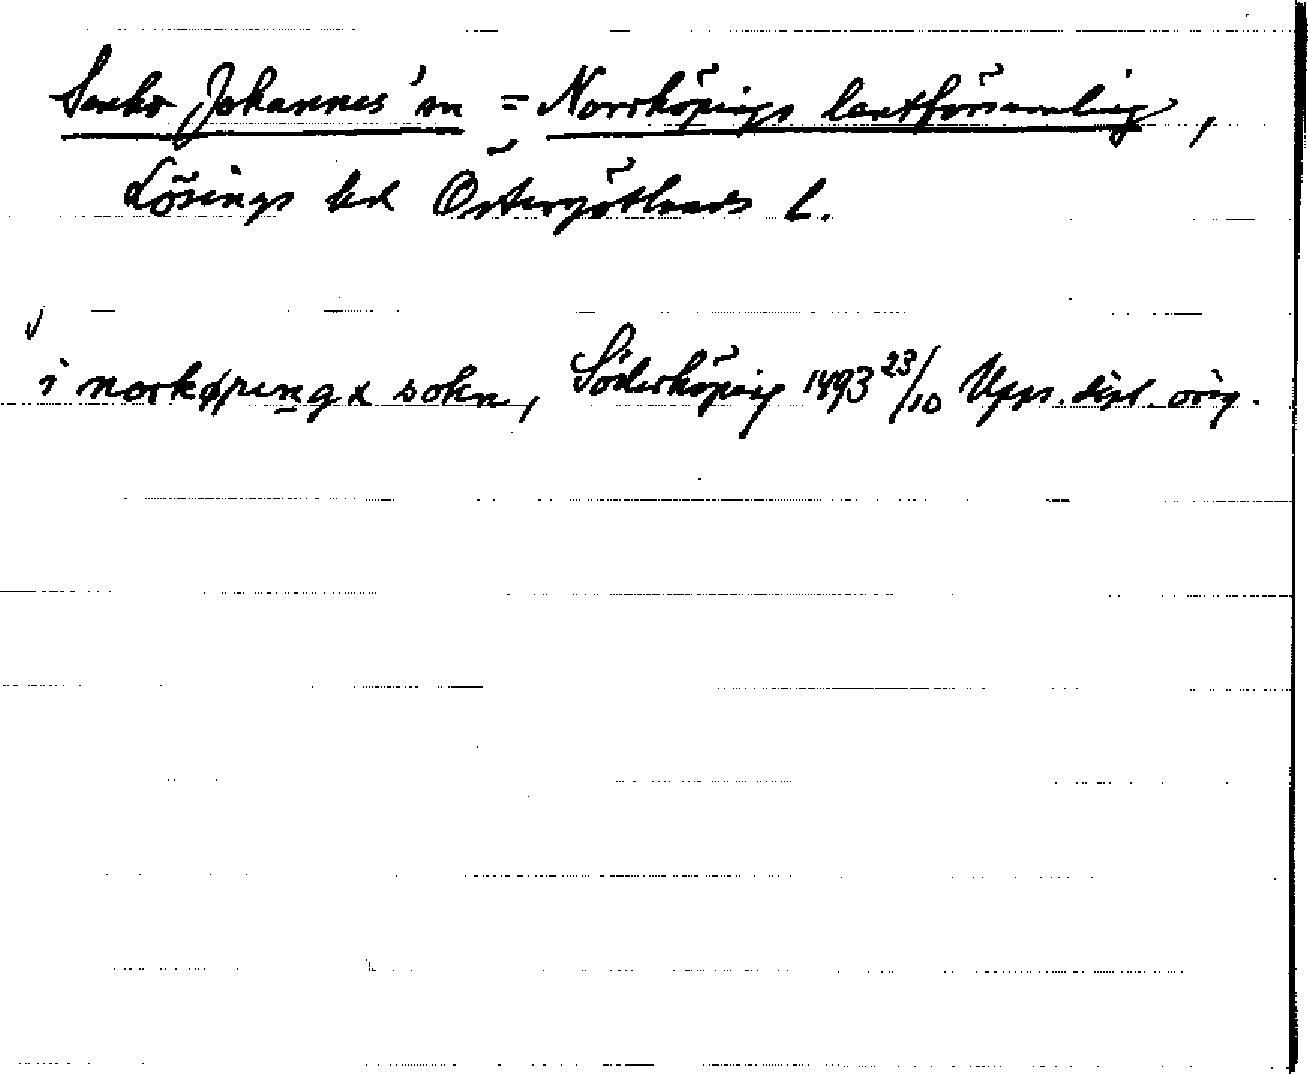 Sankt Johannes' sn = Norrköpings lantförsamling,
Lösings hd Östergötlands l.
i norkøpungx sokn, Söderköping 1493 23/10 Upps. dipl. orig.